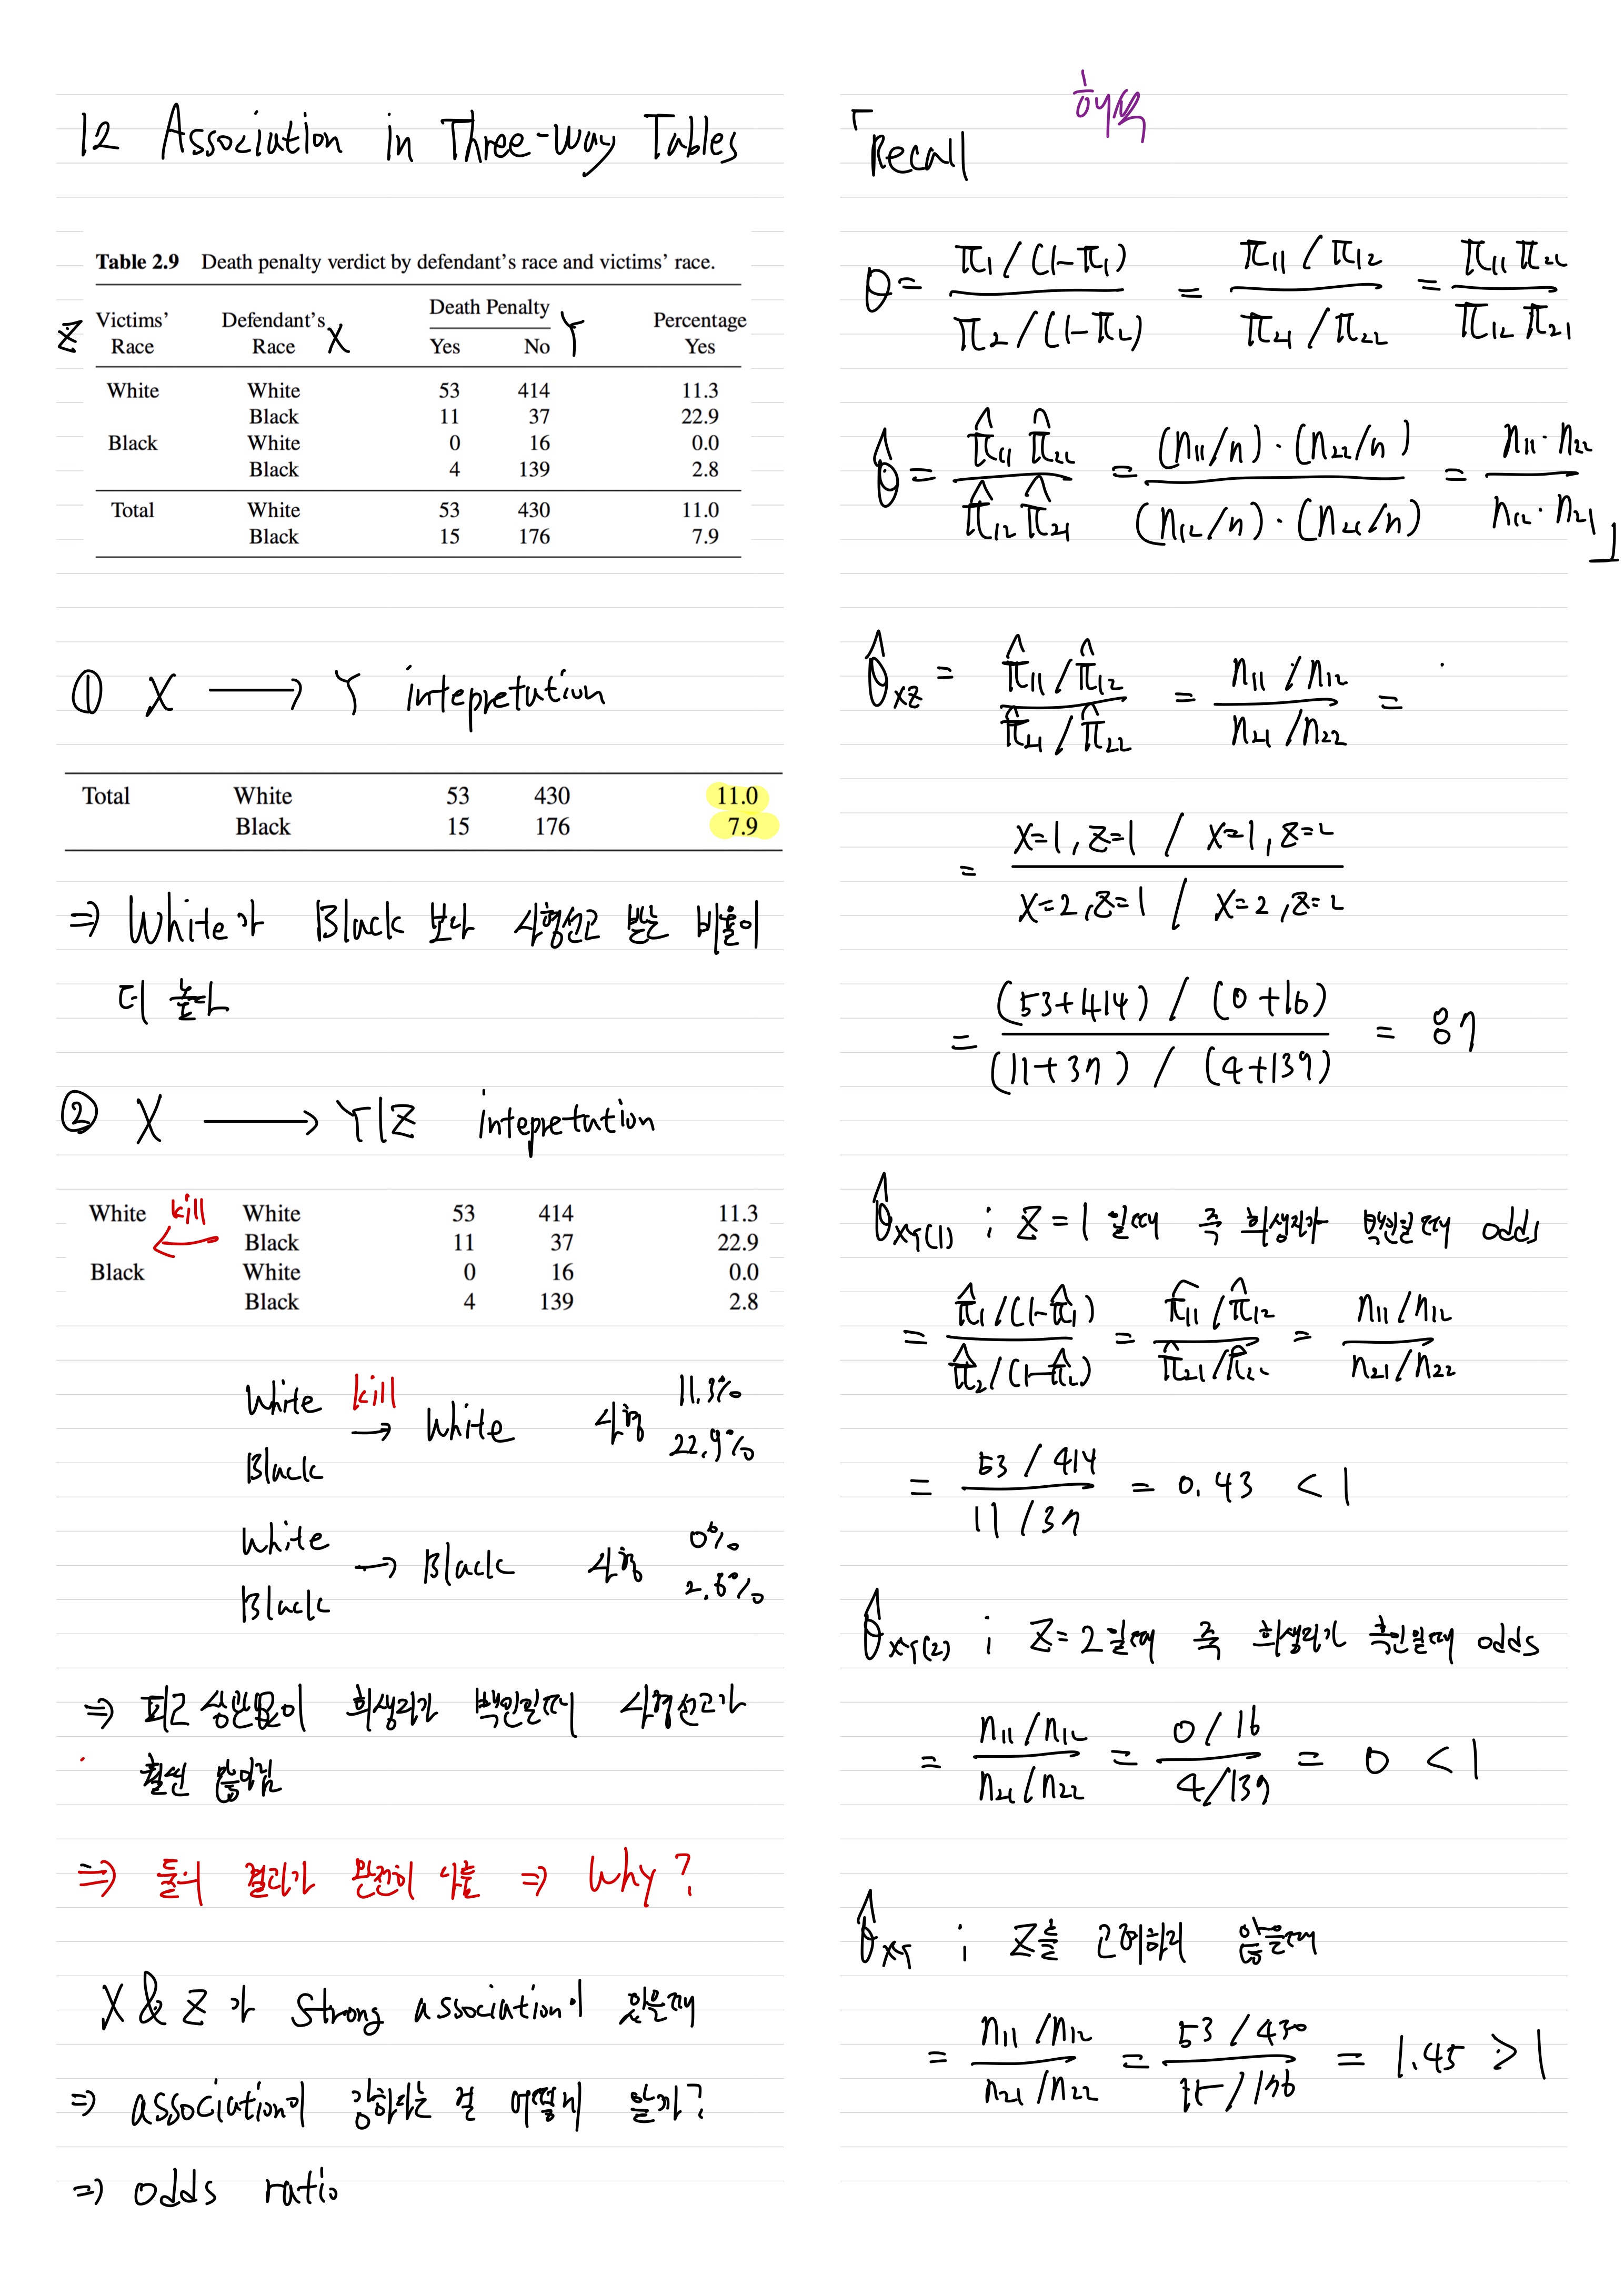 12 Association in Three-way Tables
Table 2.9 Death penalty verdict by defendant's race and victims' race.
Victims' Defendant's Death Penalty Percentage
Z Race Race X Yes No Y Yes
White White 53 414 11.3
Black 11 37 22.9
Black White 0 16 0.0
Black 4 139 2.8
Total White 53 430 11.0
Black 15 176 7.9
① X → Y intepretation
Total White 53 430 11.0
Black 15 176 7.9
⇒ White가 Black 보다 사형선고 받는 비율이
더 높다
② X → Y|Z intepretation
White kill White 53 414 11.3
Black 11 37 22.9
Black White 0 16 0.0
Black 4 139 2.8
White kill → White 사형 11.3%
Black 22.9%
White → Black 사형 0%
Black 2.8%
⇒ 피고 상관없이 희생자가 백인일때 사형선고가
훨씬 많아짐
⇒ 둘의 결과가 완전히 다름 ⇒ Why?
X & Z 가 strong association이 있을때
⇒ association이 강하다는 걸 어떻게 알까?
⇒ odds ratio
「Recall
θ = π₁/(1-π₁) / π₂/(1-π₂) = π₁₁/π₁₂ / π₂₁/π₂₂ = π₁₁π₂₂ / π₁₂π₂₁
θ̂ = π̂₁₁π̂₂₂ / π̂₁₂π̂₂₁ = (n₁₁/n)·(n₂₂/n) / (n₁₂/n)·(n₂₁/n) = n₁₁·n₂₂ / n₁₂·n₂₁ 」
θ̂xz = π̂₁₁/π̂₁₂ / π̂₂₁/π̂₂₂ = n₁₁/n₁₂ / n₂₁/n₂₂ =
= X=1, Z=1 / X=1, Z=2 / X=2, Z=1 / X=2, Z=2
= (53+414) / (0+16) / (11+37) / (4+139) = 87
θ̂xY(1) ; Z=1 일때 즉 희생자가 백인일때 odds
= π̂₁/(1-π̂₁) / π̂₂/(1-π̂₂) = π̂₁₁/π̂₁₂ / π̂₂₁/π̂₂₂ = n₁₁/n₁₂ / n₂₁/n₂₂
= 53/414 / 11/37 = 0.43 < 1
θ̂xY(2) ; Z=2일때 즉 희생자가 흑인일때 odds
= n₁₁/n₁₂ / n₂₁/n₂₂ = 0/16 / 4/139 = 0 < 1
θ̂xY ; Z를 고려하지 않을때
= n₁₁/n₁₂ / n₂₁/n₂₂ = 53/430 / 15/176 = 1.45 > 1